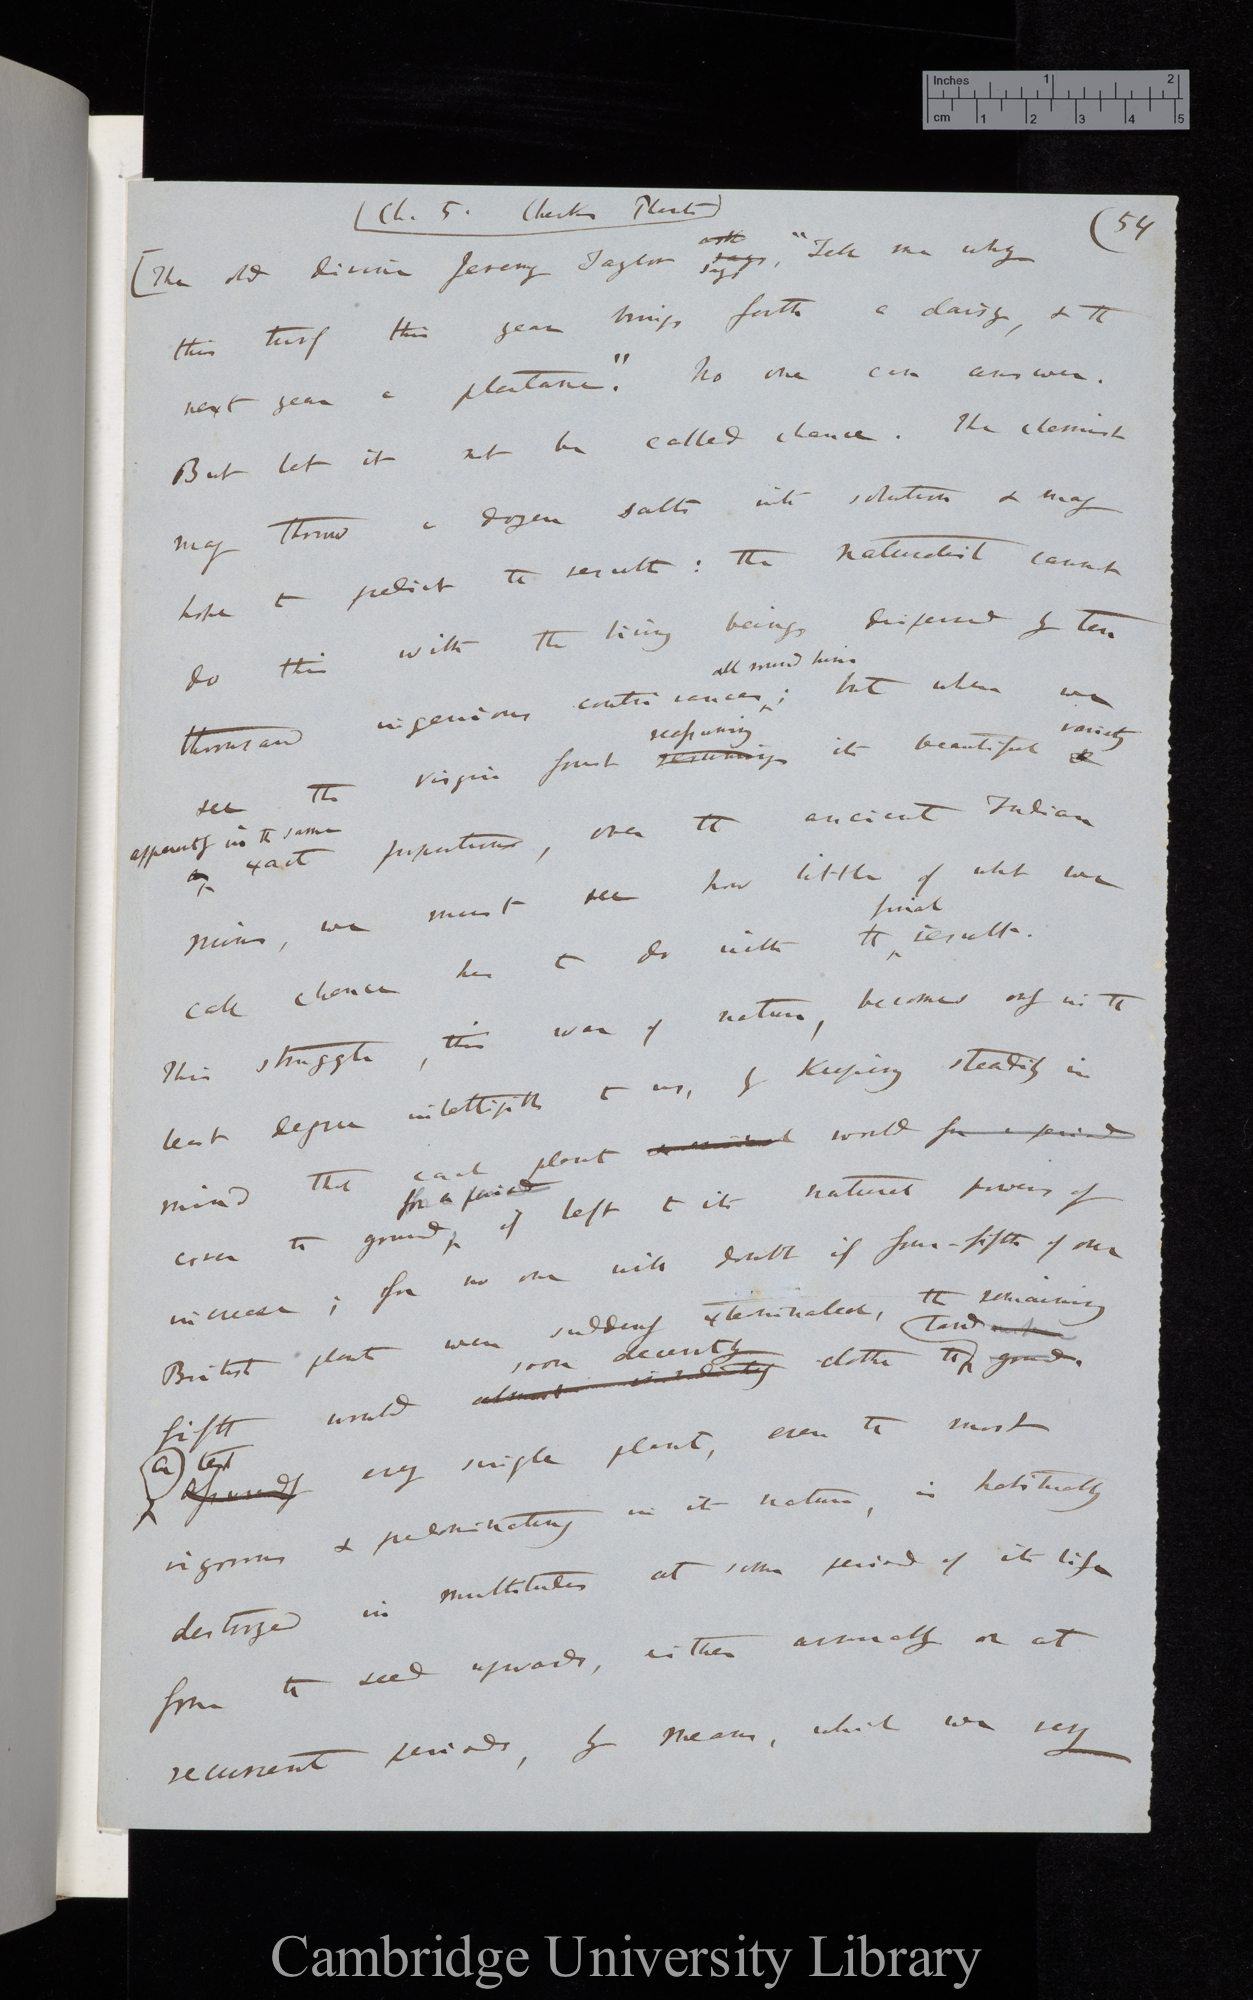 Inches 1 2
cm 1 2 3 4 5
(Ch. 5. Checks Plants)
(54
[The old divine Jeremy Taylor says, "Tell me why
this turf this year brings forth a daisy, & the
next year a plantane". No one can answer.
But let it not be called chance. The chemist
may throw a dozen salts into solution & may
hope to predict the result: the naturalist cannot
do this with the living beings dispersed by ten
all round him
thousand ingenious contrivances; but when we
reassuming variety
see the virgin forest its beautiful &
apparently in the same
exact proportions, over the ancient Indian
ruins, we must see how little of what we
final
call chance has to do with the result.
This struggle, this war of nature, becomes only in the
least degree intelligible to us, by keeping steadily in
mind that each plant would for a period
for a period
cover the ground, if left to its natural powers of
increase; for no one will doubt if four-fifth of our
British plants were suddenly exterminated, the remaining
soon decently land
fifth would clothe the ground.
(a) test
every single plant, even the most
vigorous & predominating in its nature, is habitually
destroyed in multitudes at some period of its life
from the seed upwards, either annually or at
recurrent periods, by means, which we very
Cambridge University Library